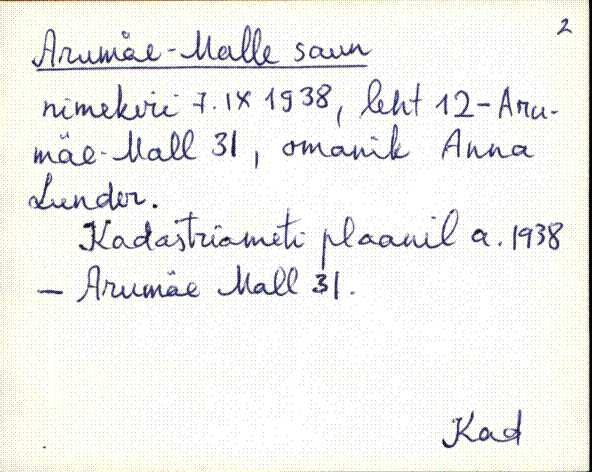 2
Arumäe-Malle saun
nimekiri 7. IX 1938, leht 12-Aru-
mäe-Mall 31, omanik Anna
Lunder.
Kadastriameti plaanil a. 1938
– Arumäe Mall 31.
Kad